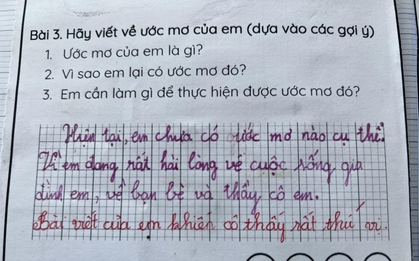 Bài 3. Hãy viết về ước mơ của em (dựa vào các gợi ý)
1. Ước mơ của em là gì?
2. Vì sao em lại có ước mơ đó?
3. Em cần làm gì để thực hiện được ước mơ đó?
Hiện tại, em chưa có ước mơ nào cụ thể.
Vì em đang rất hài lòng về cuộc sống gia
đình em, về bạn bè và thầy cô em.
Bài viết của em khiến cô thấy rất thú vị.